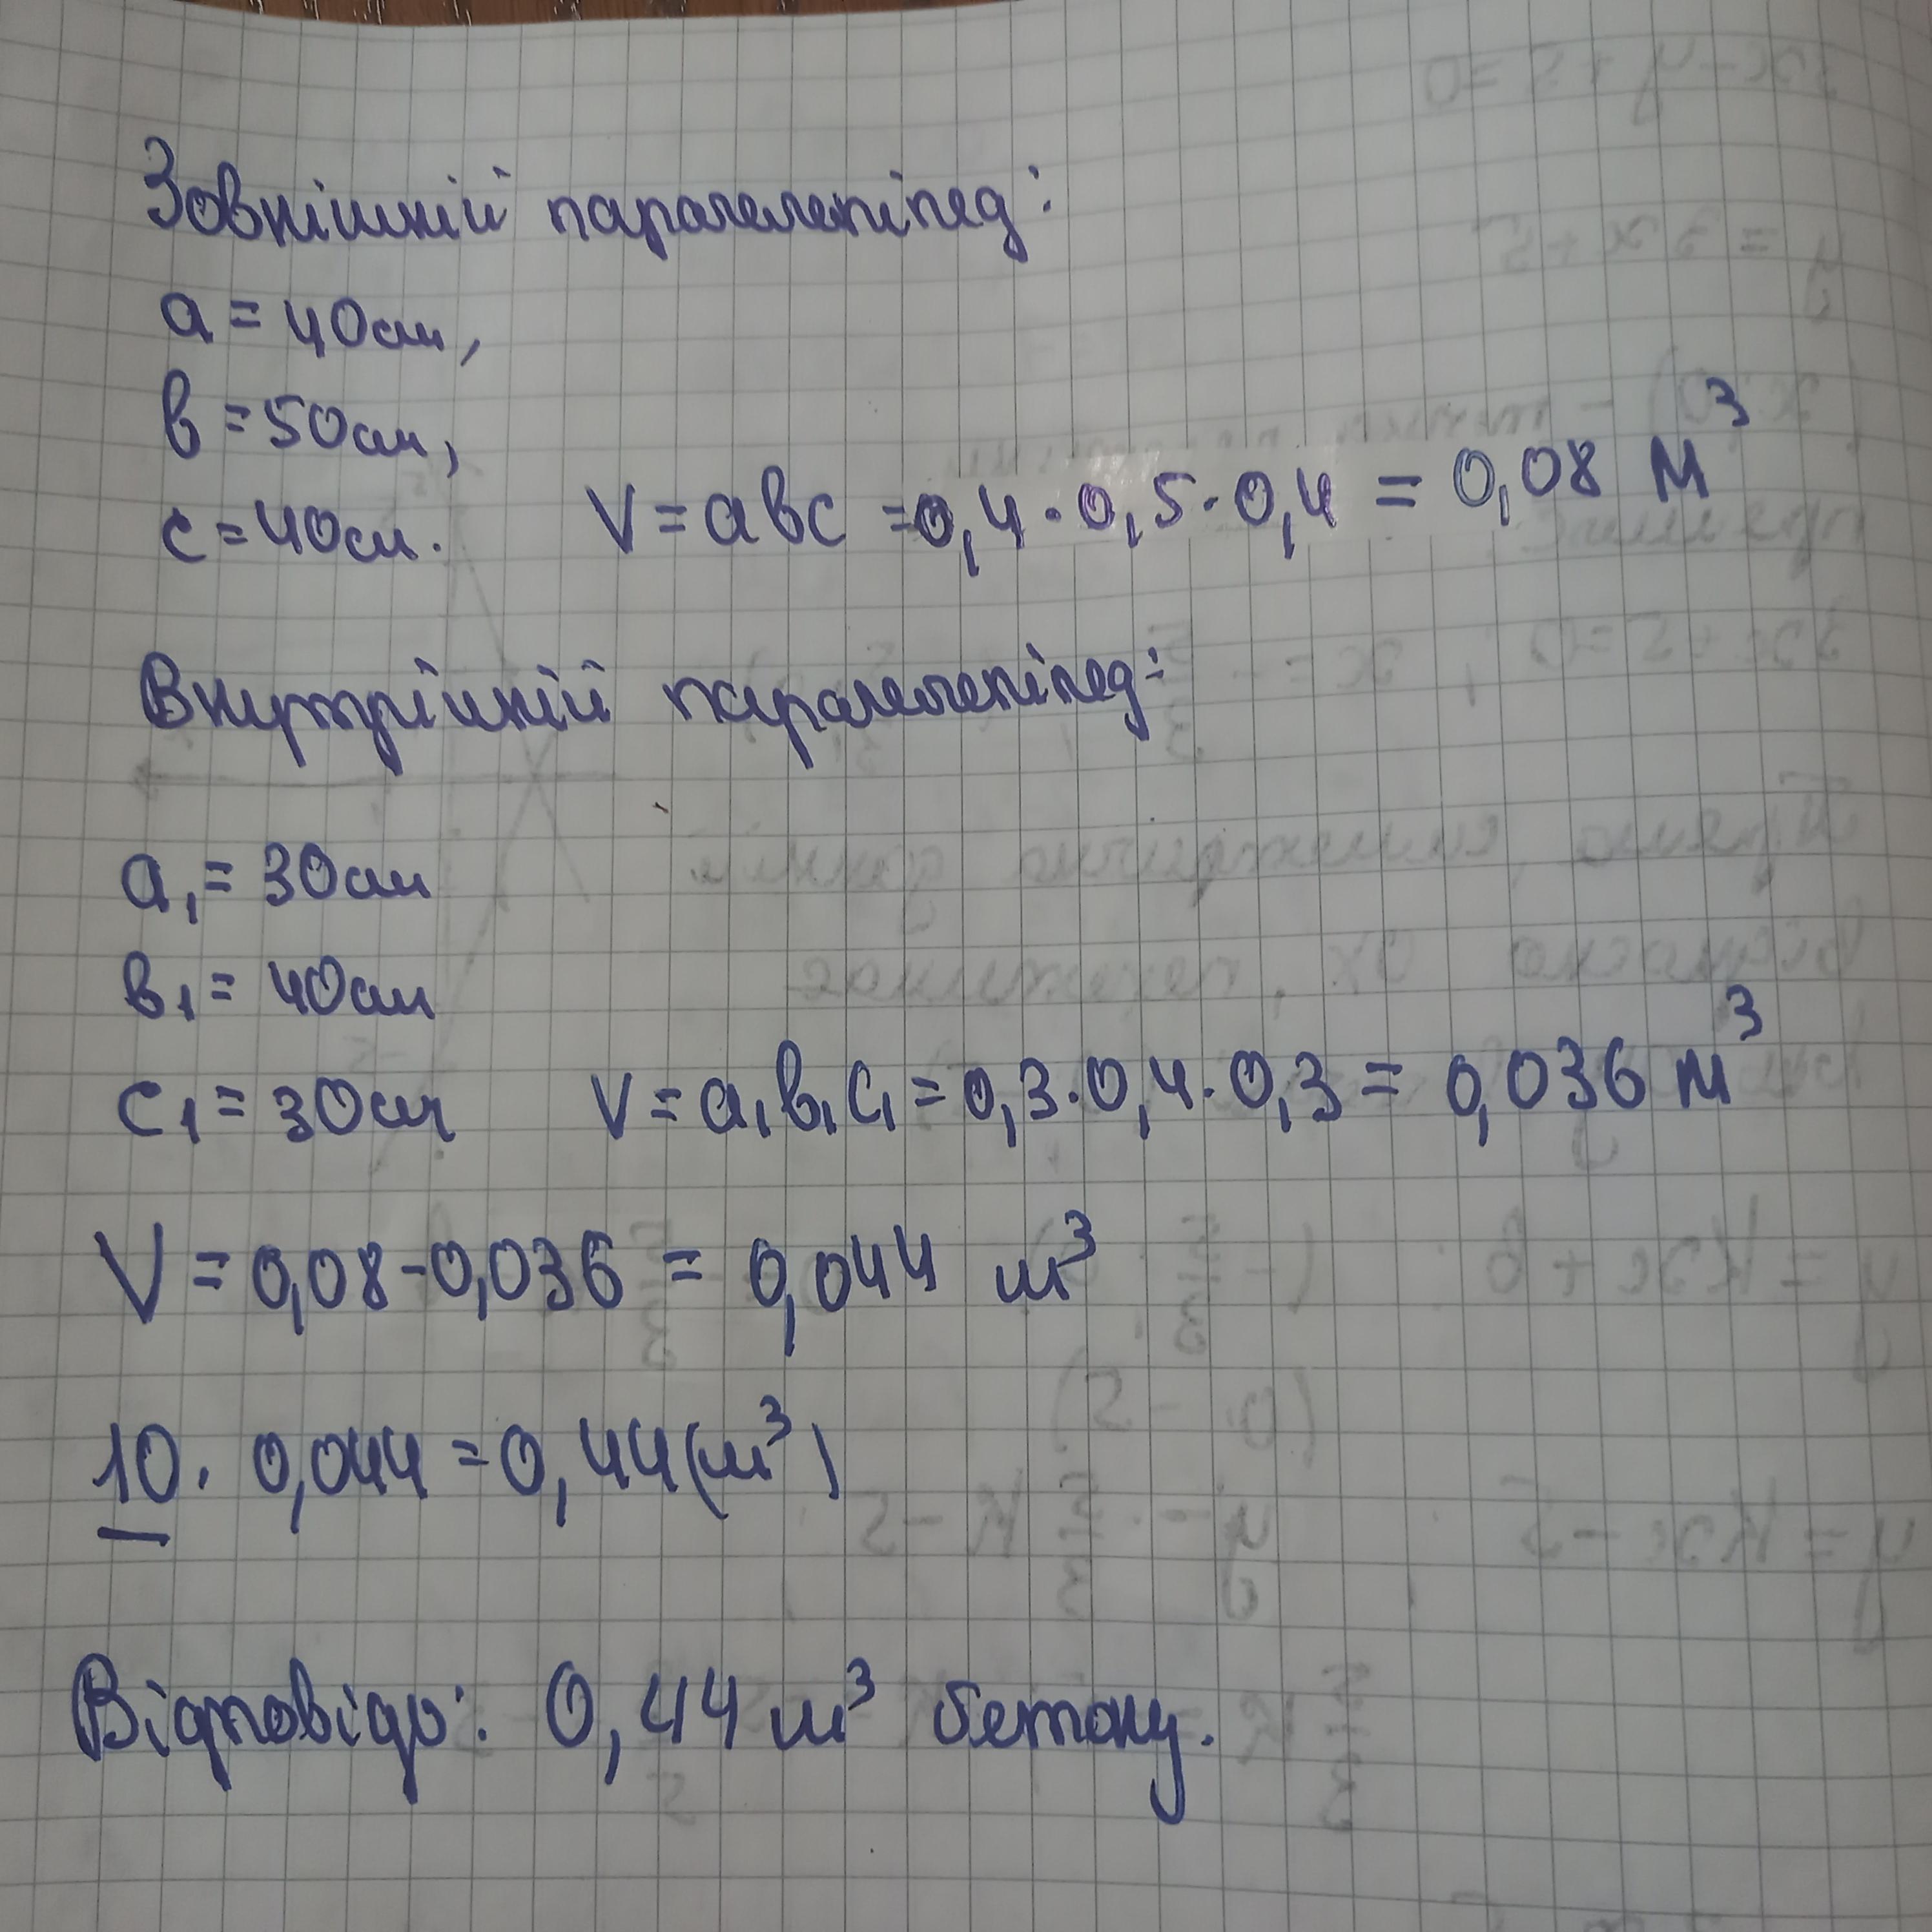 Зовнішній паралелепіпед:
a = 40см,
в = 50см,
c = 40см. V = aвc = 0,4 · 0,5 · 0,4 = 0,08 м³
Внутрішній паралелепіпед:
a₁ = 30см
в₁ = 40см
c₁ = 30см V = a₁в₁c₁ = 0,3 · 0,4 · 0,3 = 0,036 м³
V = 0,08 - 0,036 = 0,044 м³
10 · 0,044 = 0,44 (м³)
Відповідь: 0,44 м³ бетону.